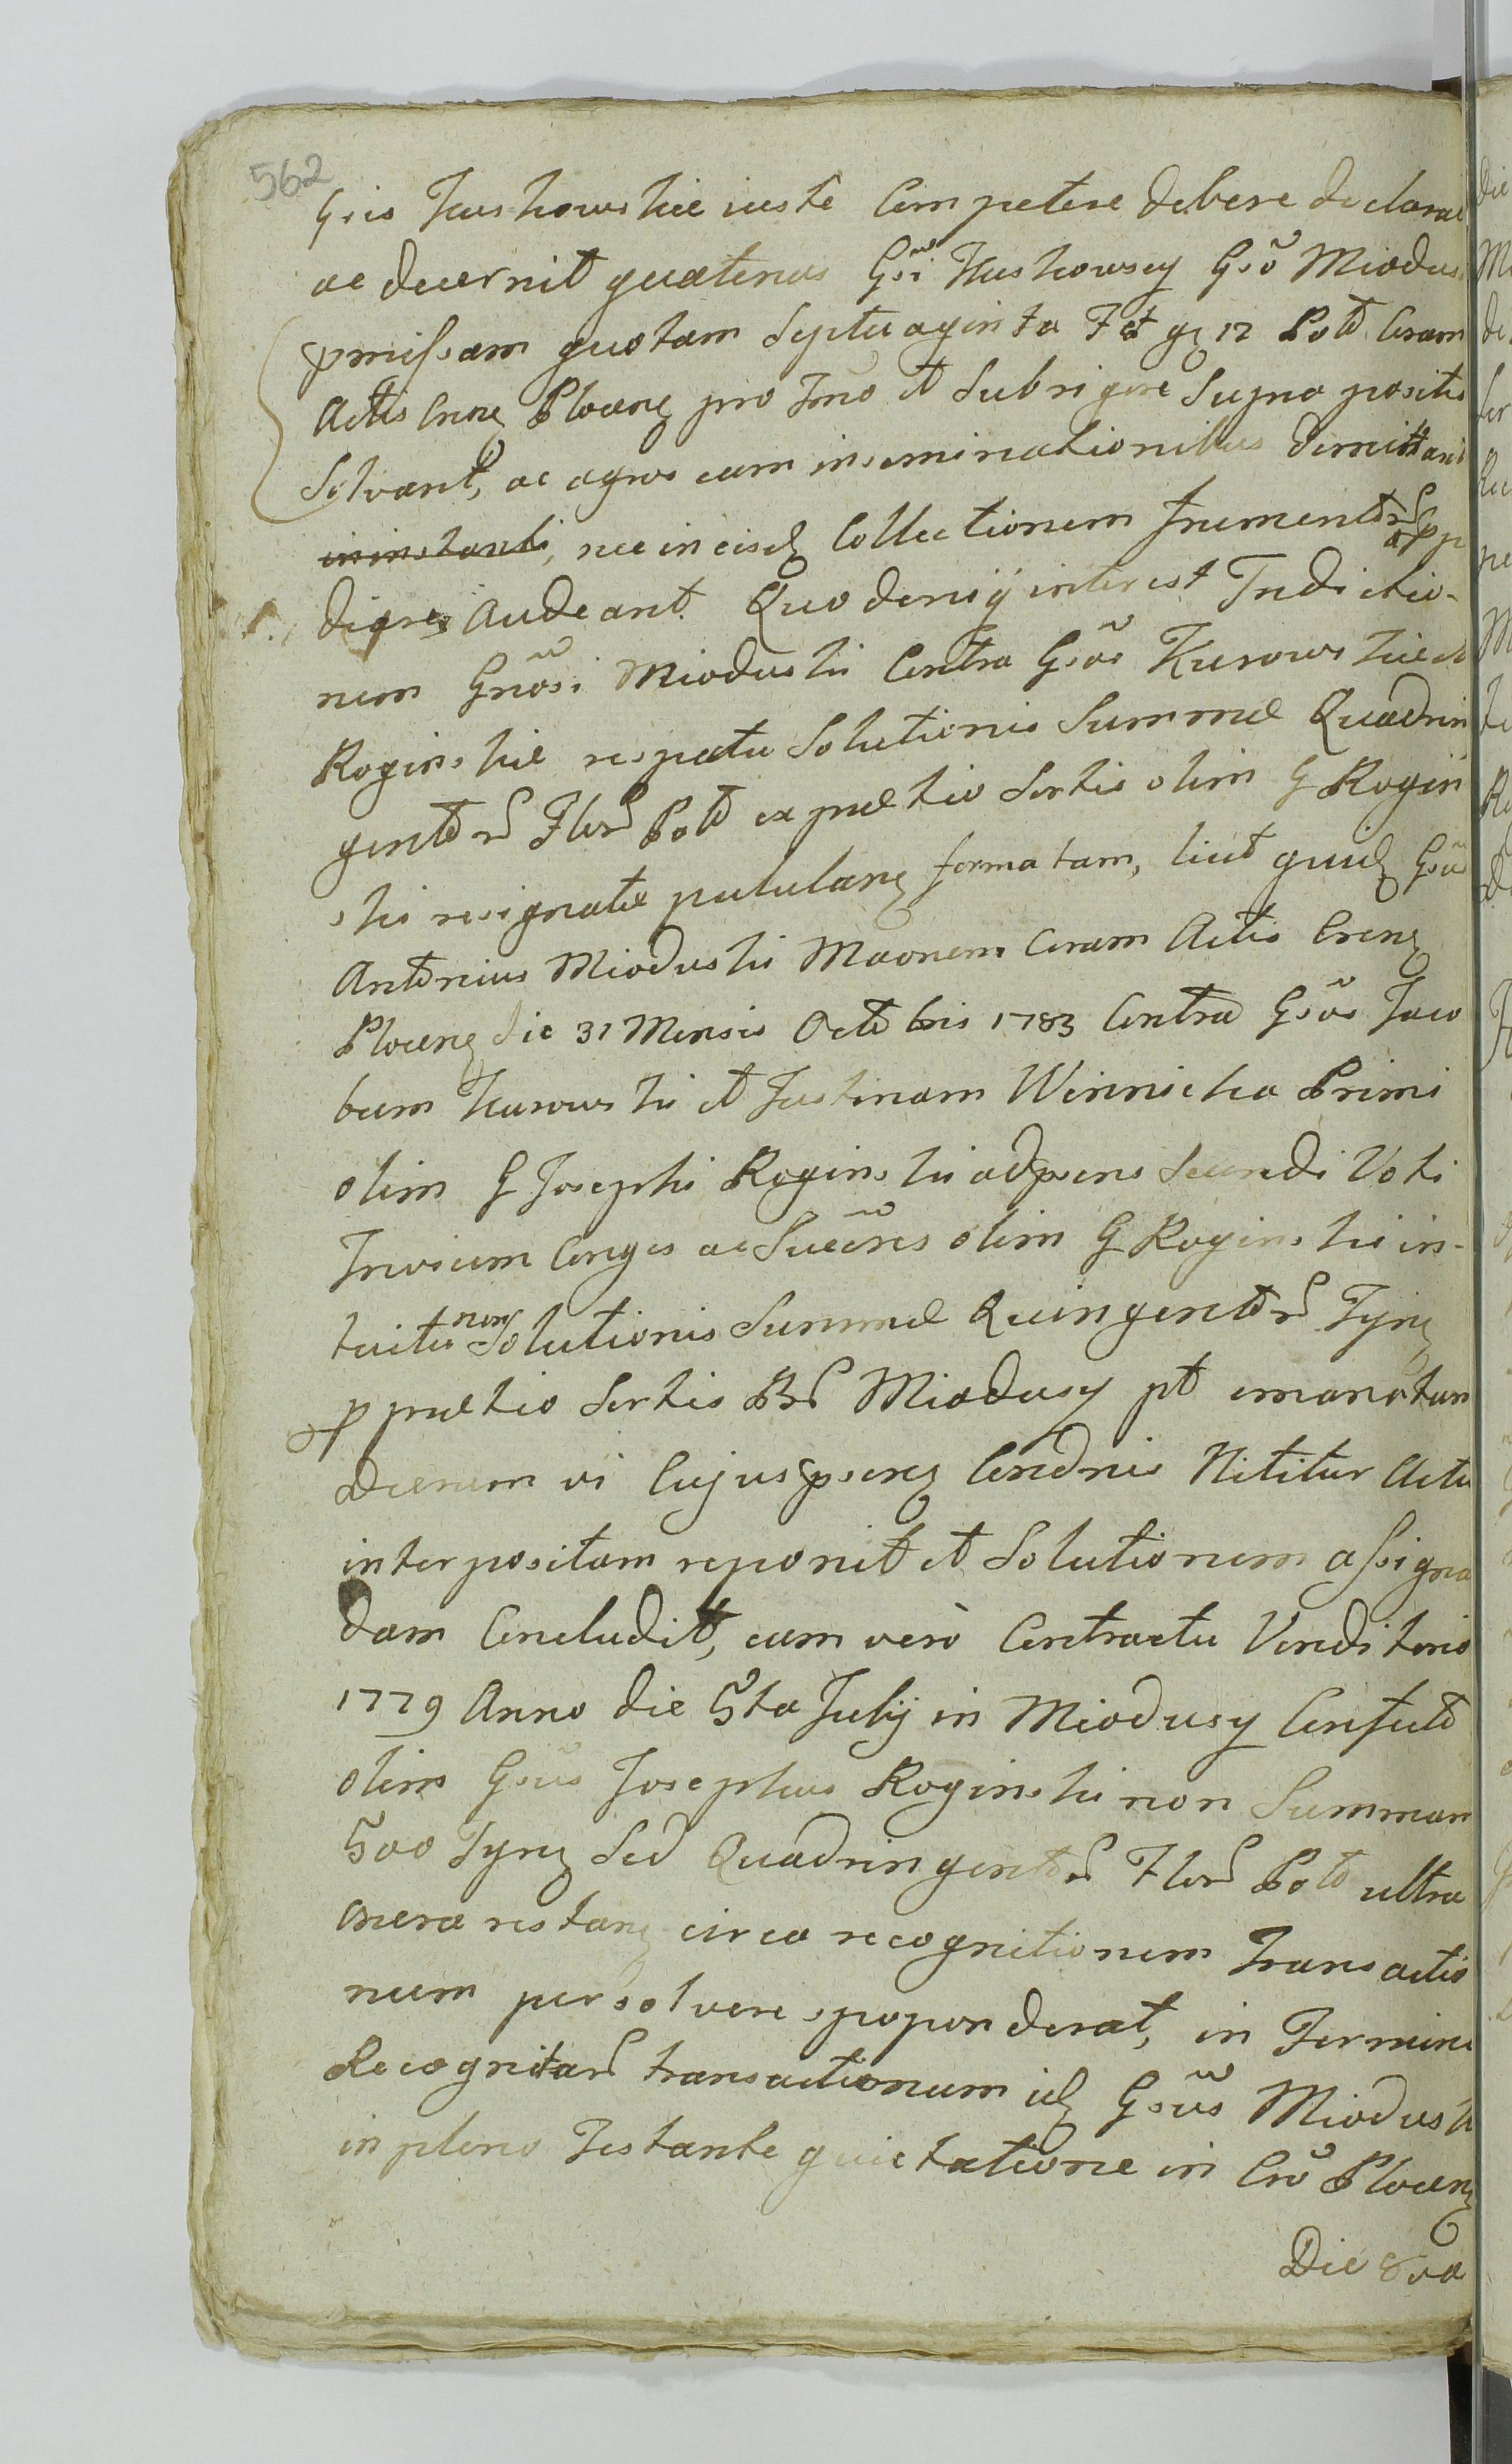 562
Gsis Kuskowskie iuste Competere debere declarat
ac decernit quatenus Gsi Kuskowscy Gso Miodus
pmissam quotam Septuaginta Fl gz 12 Pol Coram
Actis Crenz Plocenz pro Imo et Subrigore Supra positis
Solvant, ac agros cum inseminationibus dimittant
in instanti, nec in eisdz Collectionem frumentor pp
digres Audeant. Quo denij interest Indictio-
nem Gnosi Mioduski Contra Gsos Kurowskie et
Roginskie respectu Solutionis Summae Quadrin
gentor Flor Pol ex praetio Sortis olim G Rogin
ski resignatae pululanz formatam, licut quidz Gsus
Antonius Mioduski Maonem Coram Actis Crenz
Plocenz die 31 Mensis Octobris 1783 Contra Gsos Jaco
bum Kurowski et Justinam Winnicka Primi
olim G Josephi Roginski ad psens Secundi Voti
Invicem Conges ac Succres olim G Roginski in-
tuitu non Solutionis Summae Quingentor Tynz
p praetio Sortis Br Miodusy pt emanatum
Decrum vi Cujus psenz Condnis Nititur Actu
interpositam reponit et Solutionem assigna
dam Concludit, cum verò Contractu Venditorio
1779 Anno die 5ta Julij in Miodusy Confecto
olim Gsus Josephus Roginski non Summam
500 Tynz Sed Quadringentor Flor Pol ultra
onera restanz circa recognitionem Transactio
num persolvere spoponderat, in Termino
Recognitar transactionum idz Gsus Miodusk
in pleno Testante quietatione in Cro Plocenz
Die 8va